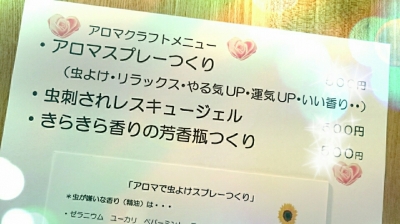 アロマクラフトメニュー
・アロマスプレーつくり
(虫よけ・リラックス・やる気UP・運気UP・いい香り・・) 00円
・虫刺されレスキュージェル 00円
・きらきら香りの芳香瓶つくり 00円
「アロマで虫よけスプレーつくり」
*虫が嫌いな香り(精油)は・・・
・ゼラニウム ユーカリ ペパーミント